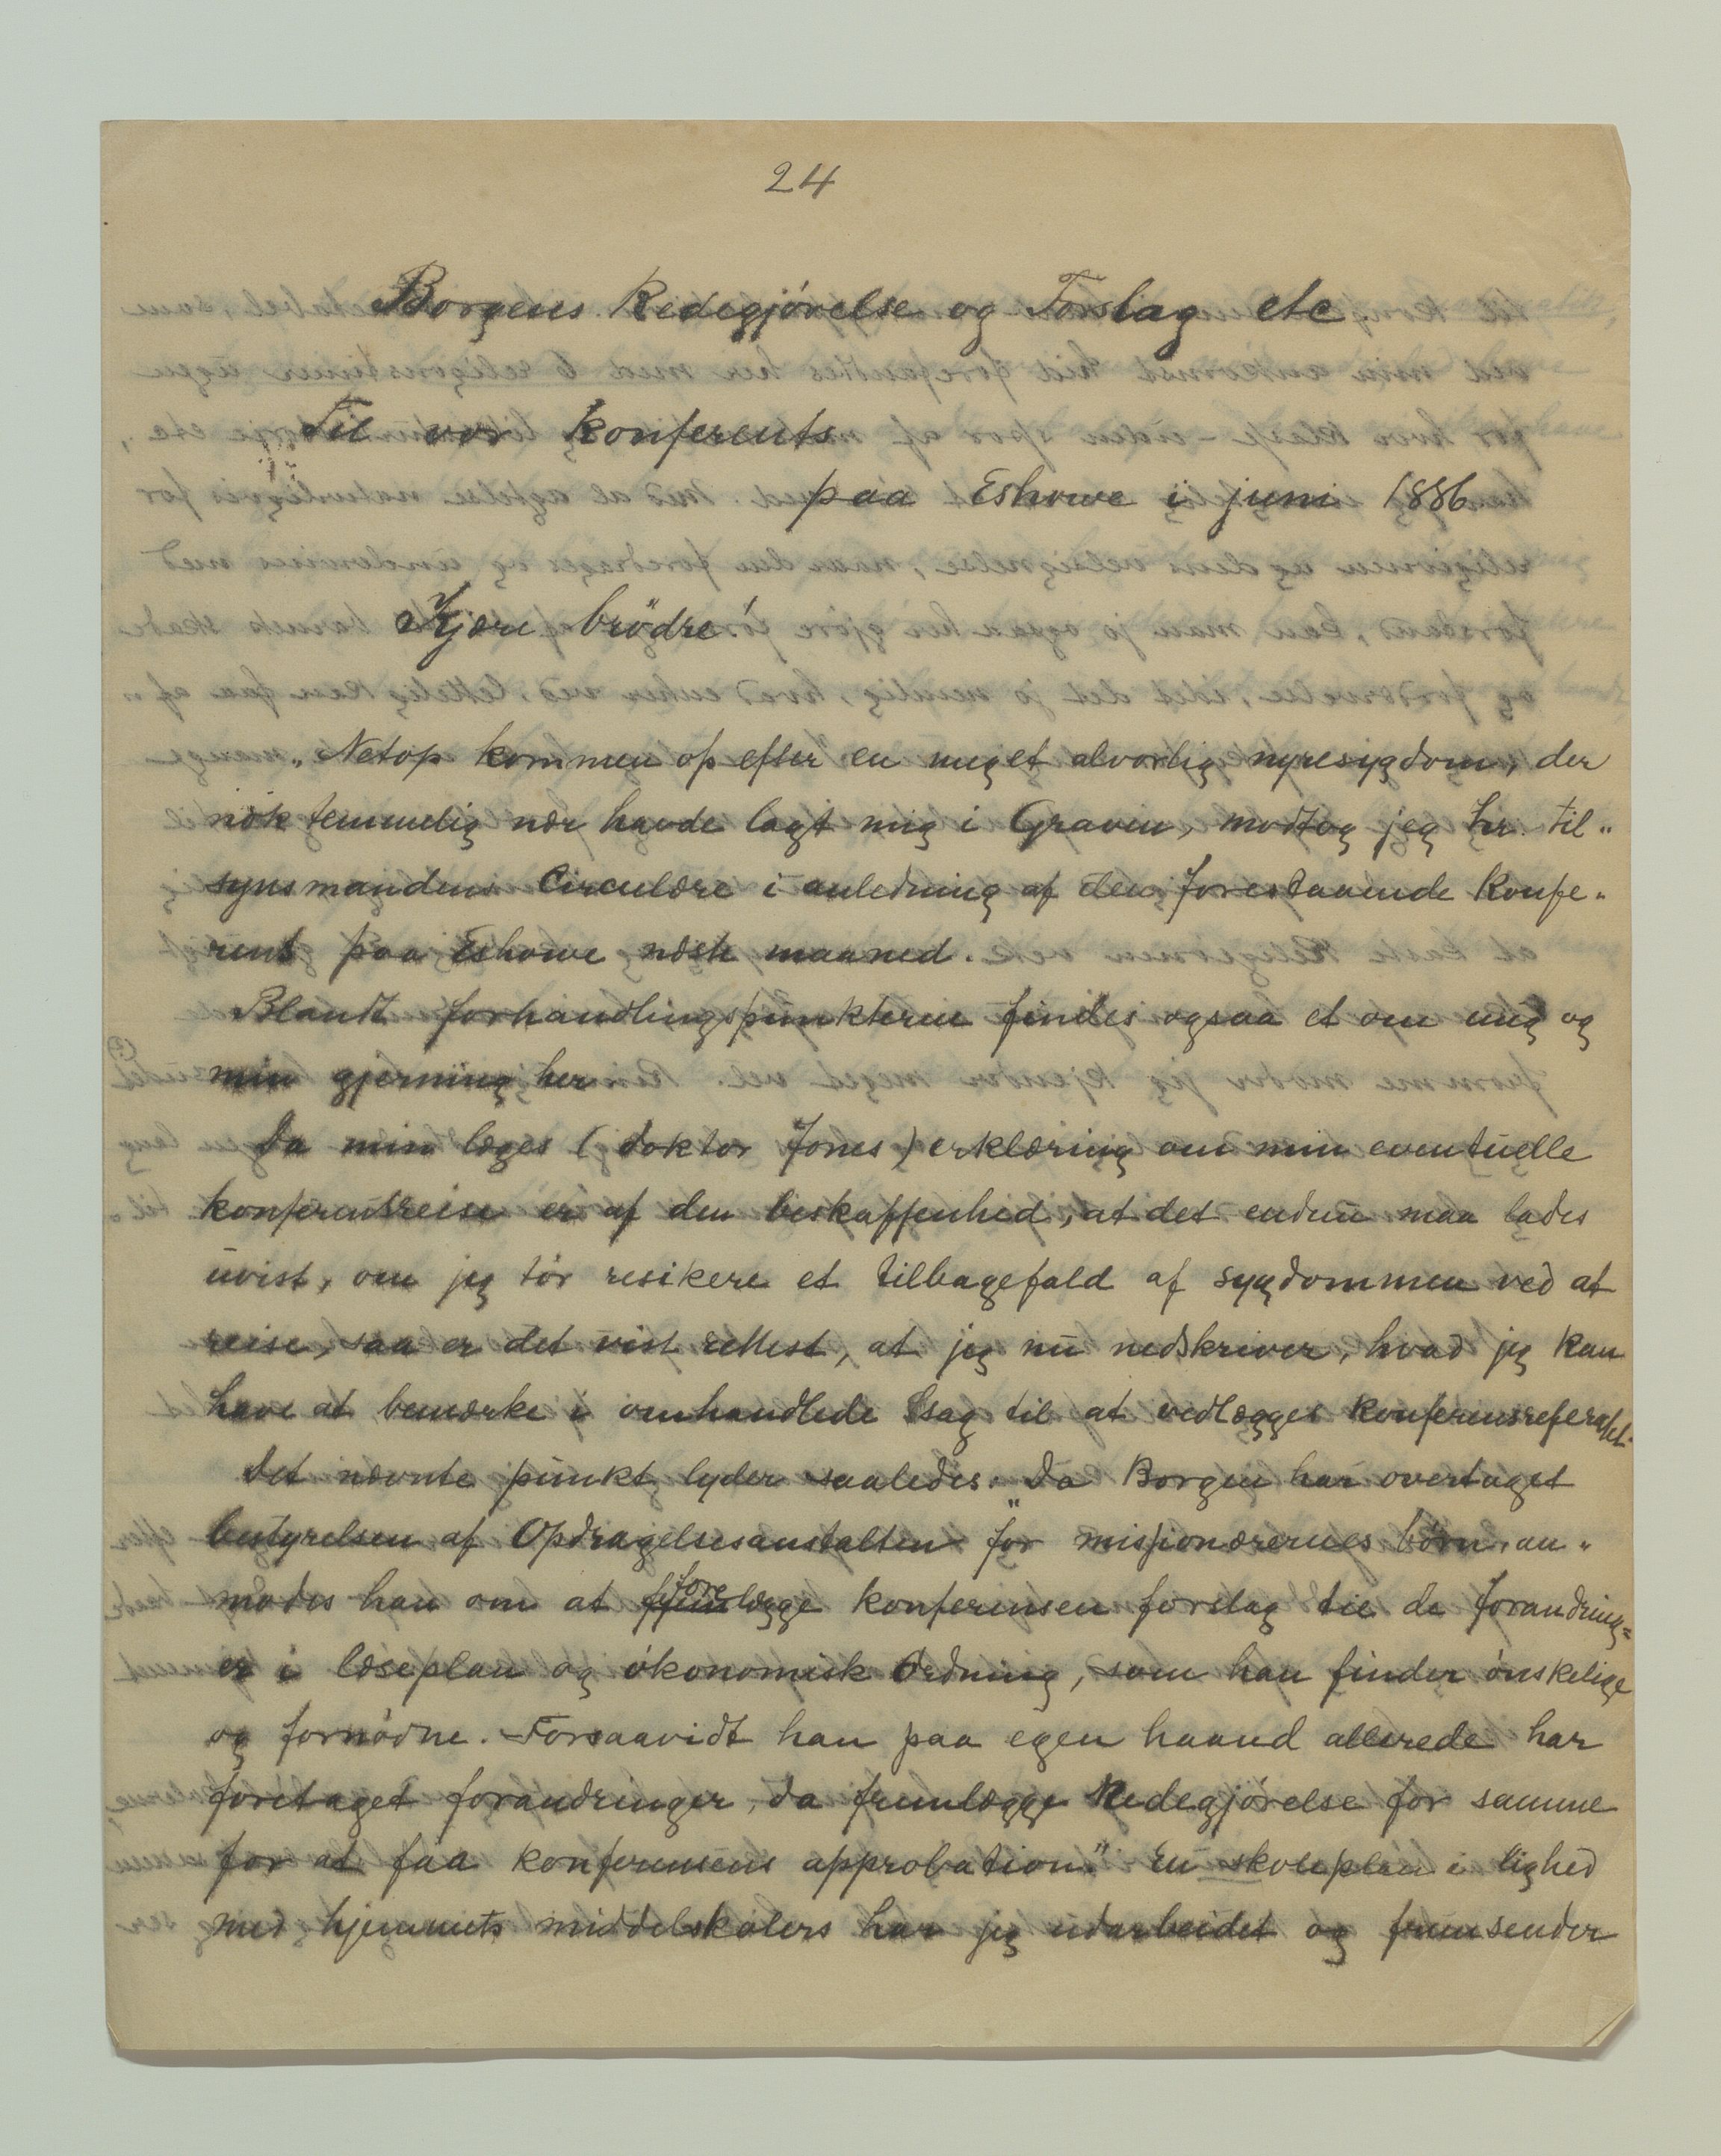 24
Borgens Redegjörelse og Forslag etc.
Til vor Konferents
paa Eshowe i juni 1886.
Kjære brödre!
„Netop kommen op efter en meget alvorlig nyresygdom, der
nok temmelig nær havde lagt mig i Graven, modtog jeg hr. til„
synsmandens Circulære i anledning af den forestaaende Konfe„
rents paa Eshowe næste maaned.
Blandt forhandlingspunkterne findes ogsaa et om mig og
min gjerning her
Da min læges (doktor Jones) erklæring om min eventuelle
konferentsreise er af den beskaffenhed, at det endnu maa lades
uvist, om jeg tör resikere et tilbagefald af sygdommen ved at
reise, saa er det vist rettest, at jeg nu nedskriver, hvad jeg kan
have at bemærke i omhandlede Sag til at vedlægges Konferensreferatet.
Det nævnte punkt lyder saaledes: „Da Borgen har overtaget
bestyrelsen af Opdragelsesanstalten for missionærernes börn, an„
modes han om at forelægge konferensen forslag til de forandring=
er i læseplan og ökonomisk Ordning, som han finder önskelige
og fornödne. Forsaavidt han paa egen haand allerede har
foretaget forandringer, da fremlægge Redegjörelse for samme
for at faa konferensens approbation." En skoleplan i lighed
med hjemmets middelskolers har jeg udarbeidet og fremsender